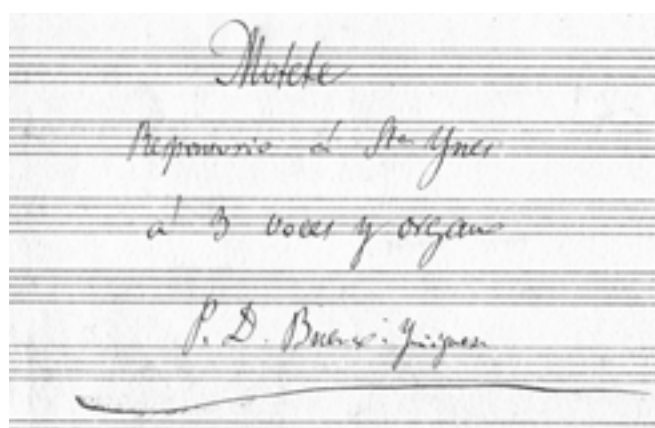 Motete
Responsorio á Sta Ynes
á 3 voces y organo
P. D. Bueno: